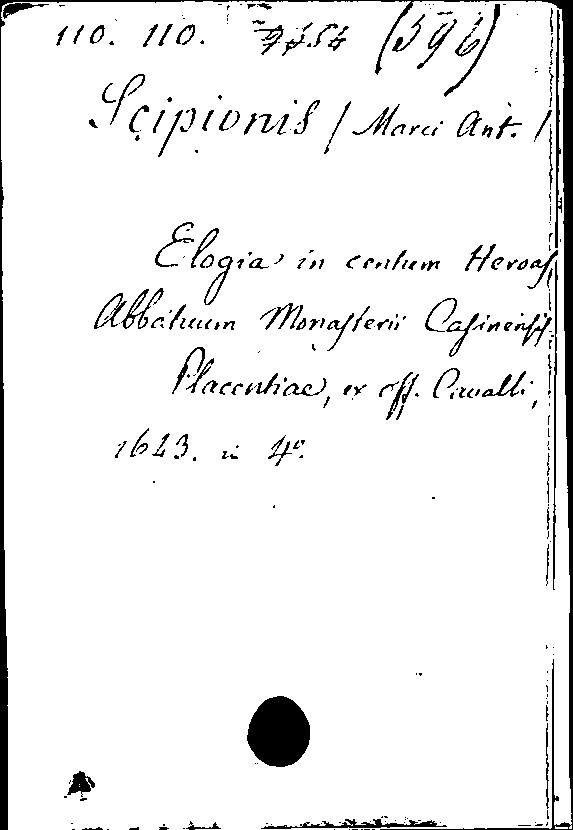 110. 110. (596)
Scipionis / Marci Ant. /
Elogia in centum Heroas
Abbatuum Monasterii Casinensis
Placentiae, ex off. Cavalli,
1643. in 4°.